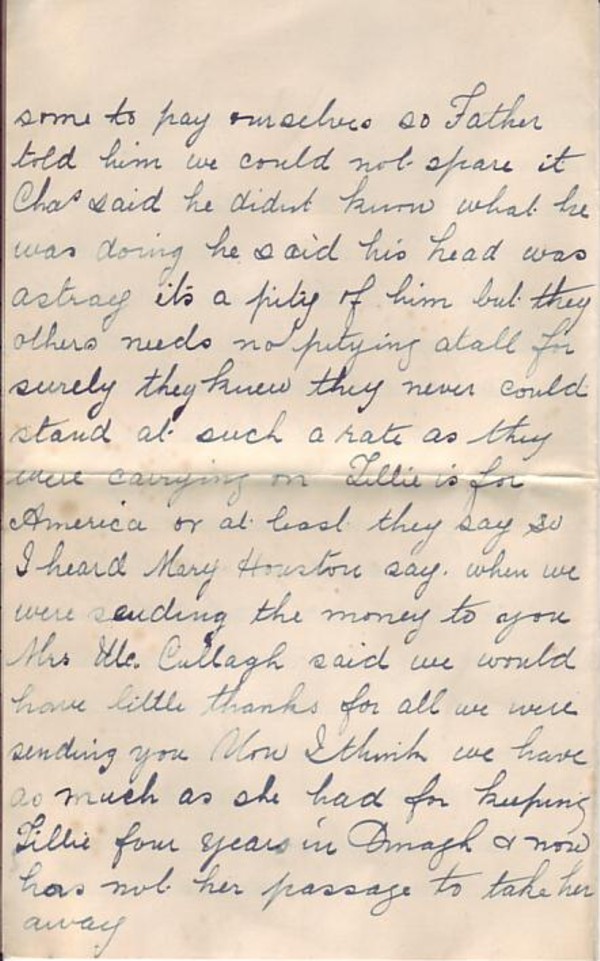 some to pay ourselves so Father
told him we could not spare it
Chas said he didnt know what he
was doing he said his head was
astray its a pity of him but they
others needs no pitying atall for
surely they knew they never could
stand at such a rate as they
were carrying on Tillie is for
America or at least they say so
I heard Mary Houston say. when we
were sending the money to you
Mrs Mc. Cullagh said we would
have little thanks for all we were
sending you Now I think we have
as much as she had for keeping
Tillie four years in Omagh & now
has not her passage to take her
away